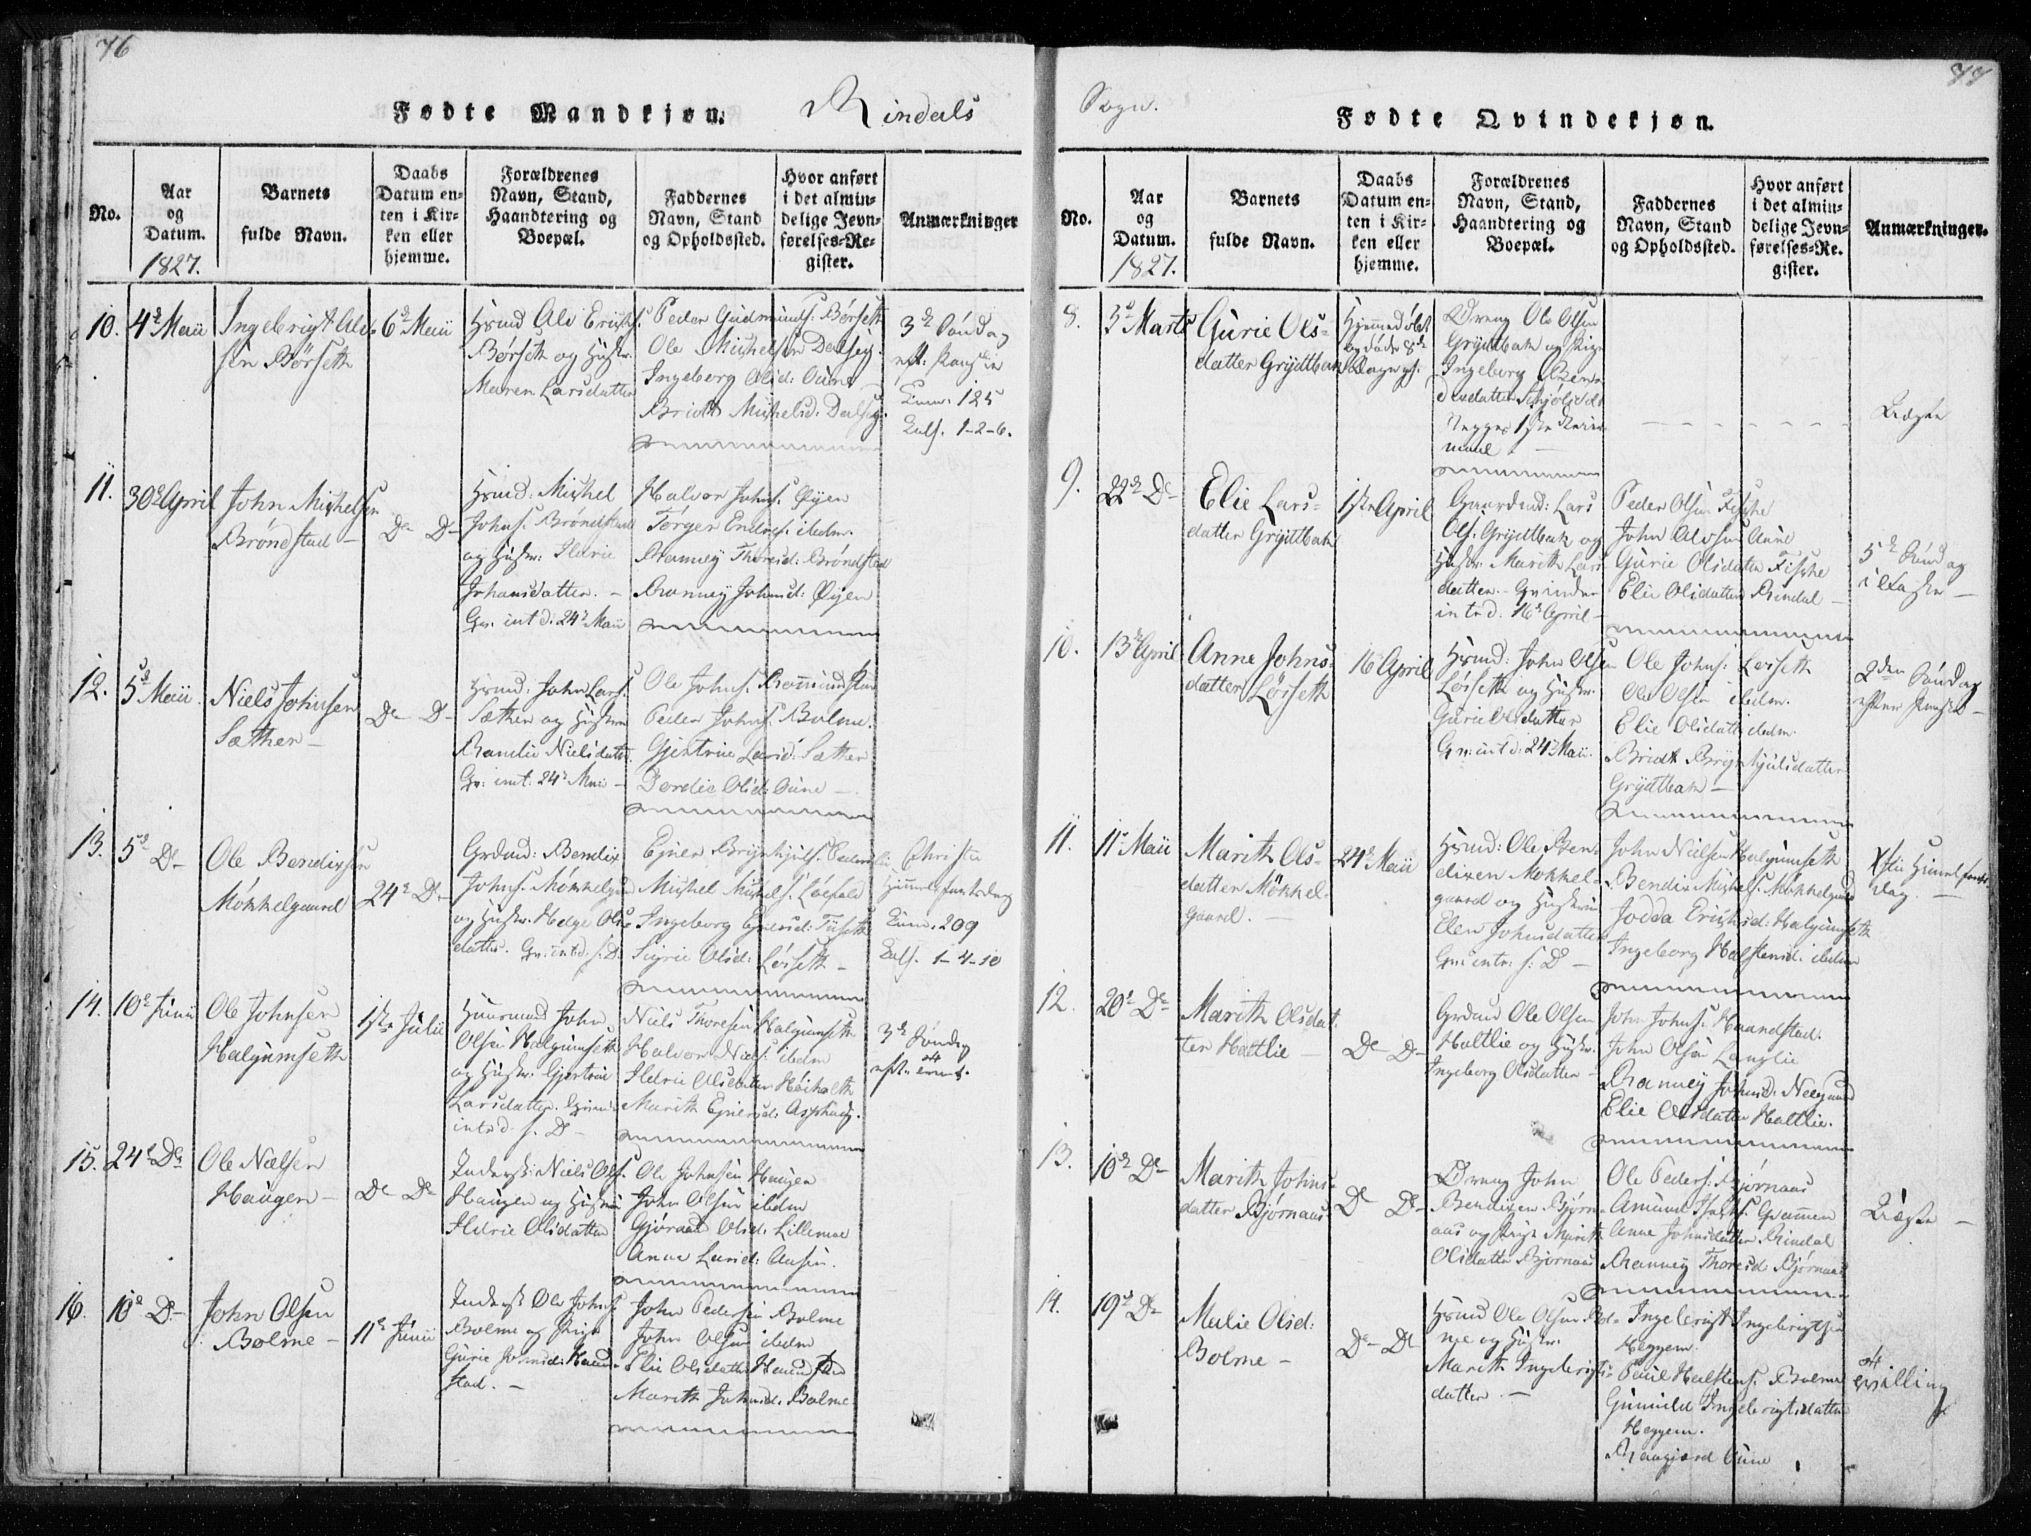 76
Fødte Mandkjøn.
Rindals
No.
Aar
og
Datum.
1827.
Barnets
fulde Navn.
Daabs
Datum en-
ten i Kir-
ken eller
hjemme.
Forældrenes
Navn, Stand,
Haandtering og
Boepæl.
Faddernes
Navn, Stand
og Opholdssted.
Hvor anført
i det almin-
delige Jevn-
førelses-Re-
gister.
Anmærkninger
10.
4de Maii
Ingebrigt Als
sen Børseth
6de Maii
Børseth og Hustr.
Maren Larsdatter
Peder Gudmunds. Børseth
Ole Michelsen Dalseg.
Ingeborg Olsd: Oune
Bridt Michelsd. Dalseg.
3de Søndag
125
1-2-6.
11.
30e April
John Michelsen
Brøndstad -
De D-
Husmd: Michel
Johns. Brøndstad
og Hustr: Sldrie
Johansdatter. -
Gv. intd. 24de Maii
Halvor Johns. Øyen
Tørger Endres. ibdm.
Ranney Thoresd: Brøndstad
Ranney Johnsd: Øyen
12.
5de Maii
Niels Johnsen
Sæther -
De D-
Husmd: John Lars.
Sæther og Hustrue
Randie Nielsdatter.
Gv. int. 24de Maii -
Ole Johns. Romundstad
Peder Johns. Bolme.
Gjertrue Larsd: Sæther
Dordie Olsd: Oune -
13.
5de D-
Ole Bendixsen
Møkkelgaard
24de D-
Grdmd: Bendix
Johns. Møkkelgard
og Hustr. Helge Ols
datter. Gv. intd. s. D.
Ejner Brynhjuls.
Michel Michels. Løefald
Ingeborg Ejnersd: Tiiseth
Sigrie Olsd: Løseth -
Christi
Himmelfartsdag
209
1-4-10
14.
10de Junii
Ole Johnsen
Halgumseth
1ste Julii
Huusmand John
Olsen Halgumseth
og Hustr. Gjertrue
Larsdatter.
intd. s. D -
Niels Thoresen Halgumseth
Halvor Niels. ibdm
Sldrie Olsdatter Høiholth
Marith Ejnersd. Asphaug.
3de Søndag
eft. trinit.
15.
24de De
Ole Nielsen
Haugen -
De De
Inderst: Niels Ols.
Haugen og Hustrue
Sldrie Olsdatter
Ole Johnsen Haugen
John Olsen ibdm
Gjøraad Olsd: Lillemoe
Anne Larsd:
16.
10de D-
John Olsen
Bolme -
11de Junii
Inderst Ole Johns.
Bolme og Pige
Gurie Johnsd: Haand
stad. -
John Pedersen Bolme
John Olsen ibdm
Elie Olsdatter Haandstad
Marith Johnsd. Bolme
77
Sogn.
Fødte Qvindekjøn.
No.
Aar
og
Datum.
1827.
Barnets
fulde Navn.
Daabs
Datum en-
ten i Kir-
ken eller
hjemme.
Forældrenes
Navn, Stand,
Haandtering og
Boepæl.
Faddernes
Navn, Stand
og Opholdssted.
Hvor anført
i det almin-
delige Jevn-
førelses-Re-
gister.
Anmærkninger.
8.
3de Marts
Gurie Ols-
datter Grytbak
Hjemmedøbt
og døde 8de
Dreng Ole Olsen
Grytbak og Pige
Ingeborg Ben
begges 1ste Leier
maal -
Uægte
9.
22de D-
Elie Lars-
datter Grytbak
1ste April
Gaardmd: Lars
Ols. Grytbak og
Hustr. Marith Lars
datter. - Qvinden
intd. 16de April -
Peder Olsen Fiske
John Alvsen Oune
Gurie Olsdatter Fiske
Elie Olsdatter Rindal -
5de Søndag
i Faste -
10.
13de April
Anne Johns
datter Løseth
16 April
Husmd: John Olsen
Løseth og Hustr.
Gurie Olsdatter
Gv: intd: 24de Maii.
Ole Johns. Løseth
Ole Olsen ibdm.
Elie Olsdatt. ibdm.
Bridt Brynhjulsdatter
Grytbak -
2den Søndag
efter Paaske -
11.
11te Maii
Marith Ols-
datter Møkkel-
gaard. -
24de Maii
Husmd: Ole Ben-
dixen Mokkel-
gaard og Hustrue
Elen Johnsdatter
Gv: intr: s: D -
John Nielsen Halgumseth
Bendix Michels. Møkkelgaard
Jodda Erichsd. Halgumseth
Ingeborg Halstensd. ibdm
Xsti Himmelfarts
dag. -
12.
20de De
Marith Olsdat
ter Haltlie -
De D-
Grdmd Ole Olsen
Haltlie og Hustr.
Ingeborg Olsdatter -
John Johns. Haandstad.
John Olsen Langlie
Ranney Johnsd. Nergaard
Elie Olsdatter Haltlie.
13.
10de De
Marith Johns
datter Bjørnaas
De De
Dreng John
Bendixen Bjørn-
aas og Pige Marith
Olsdatter Bjørnaas
Ole Peders. Bjørnaas
Amund
Anne Johnsdatter Rindal
Ranney Thoresd. Bjørnaas
Uægte -
14.
19de De
Malie Olsd:
Bolme -
De - De
Husmd Ole Olsen Bol-
me og Hustr.
Marith Ingebrigts
datter. -
Ingebrigt Ingebrigtsen
Heggem.
Paul Halstens. Bolme
Gunnild Ingebrigtsdatter
Heggem.
Oune
tvilling